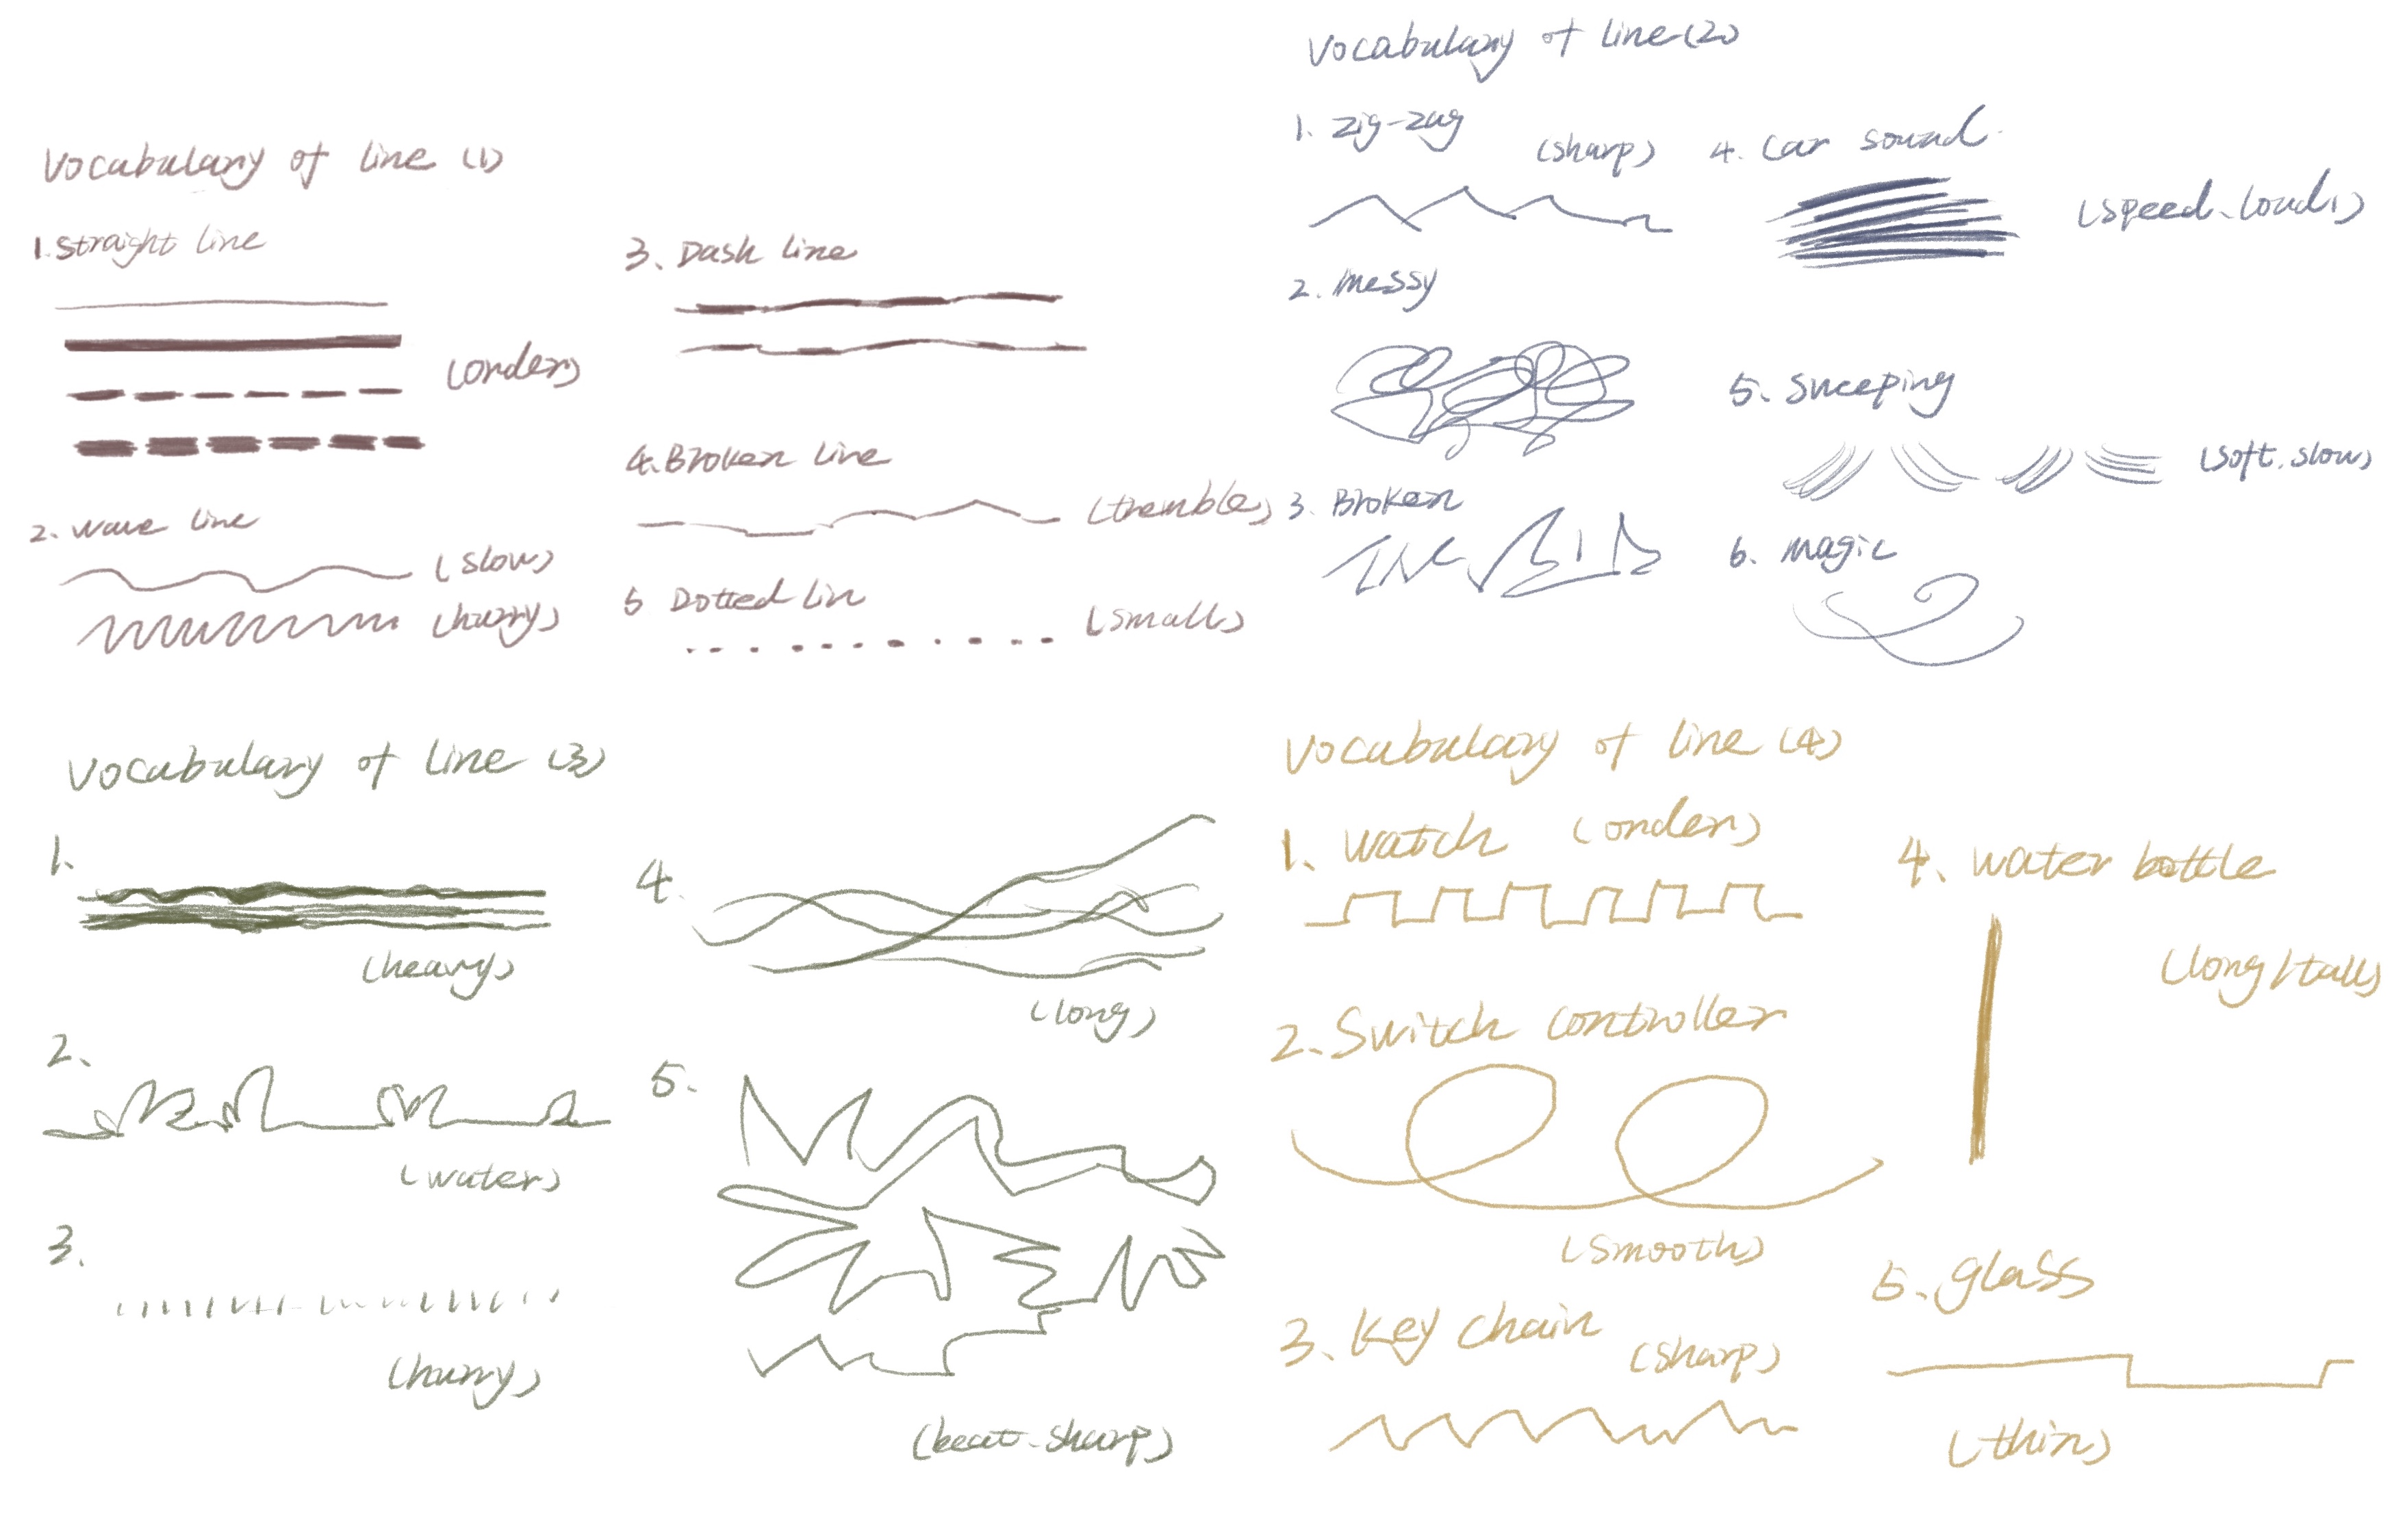 Vocabulary of line (1)
1. Straight line
(order)
2. wave line
(slow)
(hurry)
3. Dash line
4. Broken line
(tremble)
5 Dotted lin
(small)
Vocabulary of line (2)
1. zig-zag
(sharp)
2. messy
3. Broken
4. Car sound
(speed. loud)
5. Sweeping
(soft. slow)
6. magic
Vocabulary of line (3)
1.
(heavy)
2.
(water)
3.
(hurry)
4.
(long)
5.
(beat. sharp)
Vocabulary of line (4)
1. Watch (order)
2. Switch controller
(smooth)
3. Key Chain
(sharp)
4. water bottle
(long/tall)
5. glass
(thin)